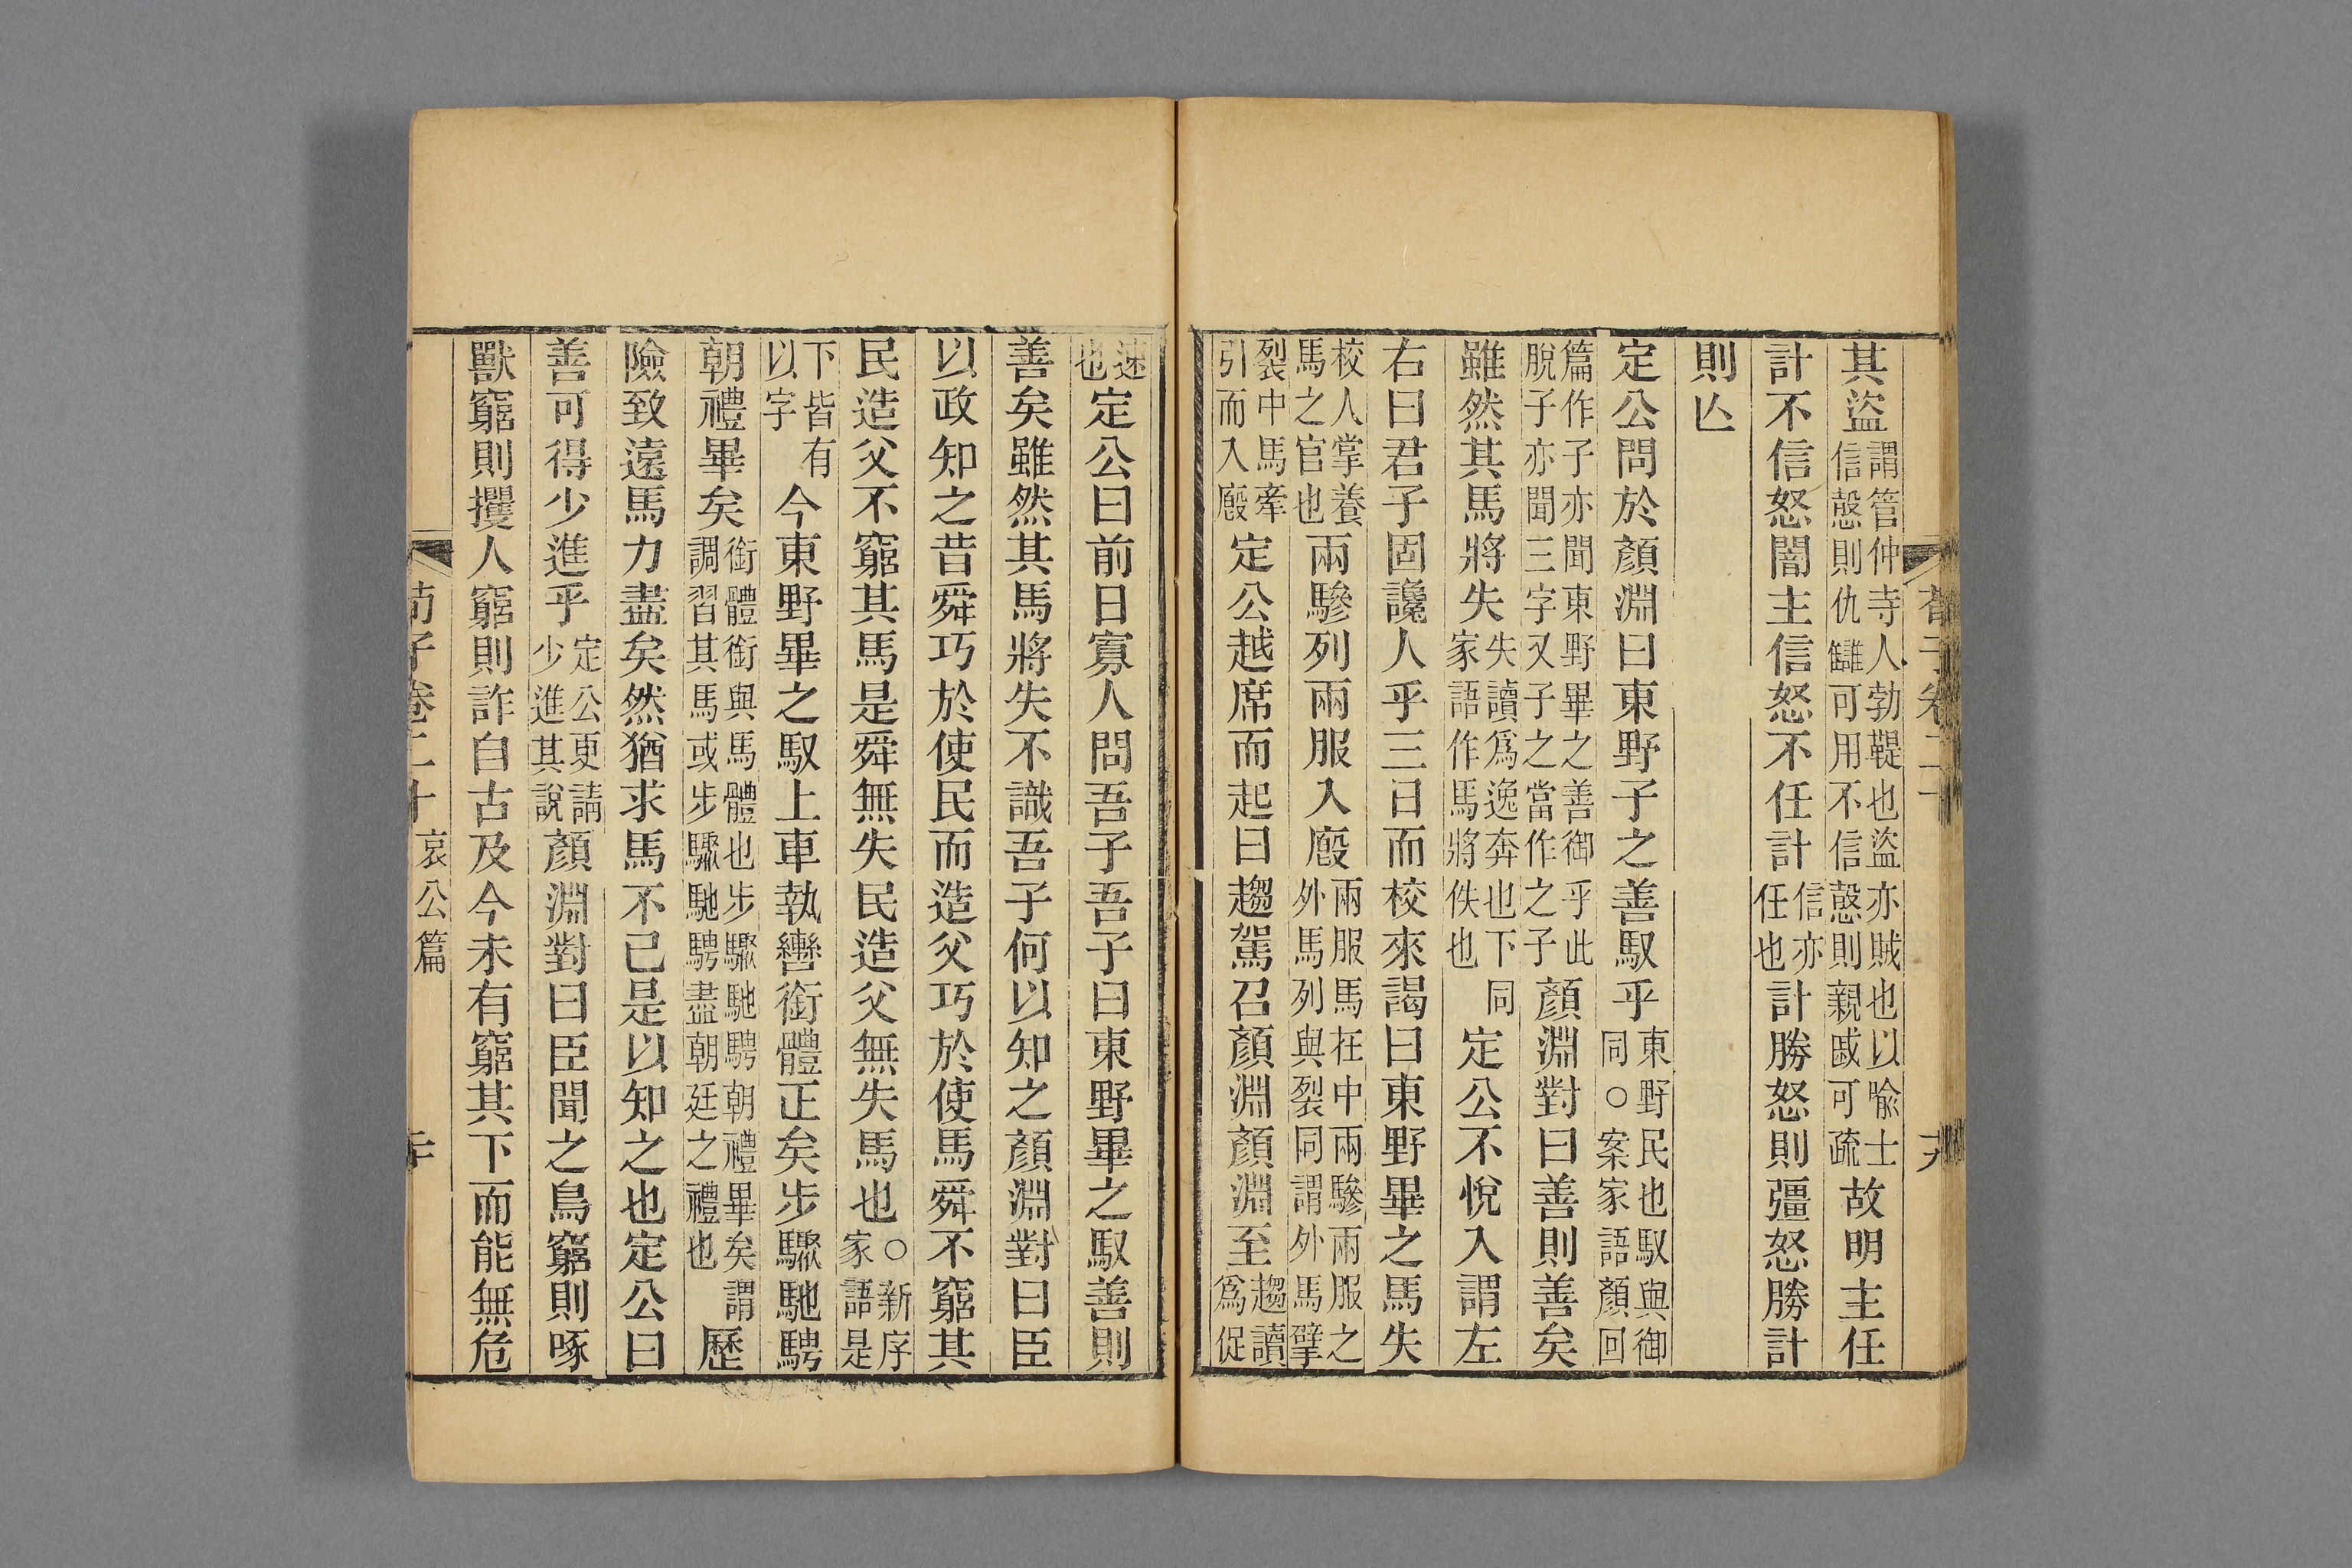 荀子卷二十
其盜謂管仲寺人勃鞮也盜亦賊也以喻士信愨則仇讎可用不信愨則親戚可疏故明主任
計不信怒闇主信怒不任計信亦任也計勝怒則彊怒勝計
則亾
定公問於顏淵曰東野子之善馭乎東野民也馭與御同○案家語顏回
篇作子亦聞東野畢之善御乎此脫子亦聞三字又子之當作之子顏淵對曰善則善矣
雖然其馬將失失讀爲逸奔也下同家語作馬將佚也定公不悅入謂左
右曰君子固讒人乎三日而校來謁曰東野畢之馬失
校人掌養馬之官也兩驂列兩服入廄兩服馬在中兩驂兩服之外馬列與裂同謂外馬擘
裂中馬牽引而入廄定公越席而起曰趨駕召顏淵顏淵至趨讀爲促
速也定公曰前日寡人問吾子吾子曰東野畢之馭善則
善矣雖然其馬將失不識吾子何以知之顏淵對曰臣
以政知之昔舜巧於使民而造父巧於使馬舜不窮其
民造父不窮其馬是舜無失民造父無失馬也○新序家語是
下皆有以字今東野畢之馭上車執轡銜體正矣步驟馳騁
朝禮畢矣銜體銜與馬體也步驟馳騁朝禮畢矣謂調習其馬或步驟馳騁盡朝廷之禮也歷
險致遠馬力盡矣然猶求馬不已是以知之也定公曰
善可得少進乎定公更請少進其說顏淵對曰臣聞之鳥窮則啄
獸窮則攫人窮則詐自古及今未有窮其下而能無危
荀子卷二十 哀公篇